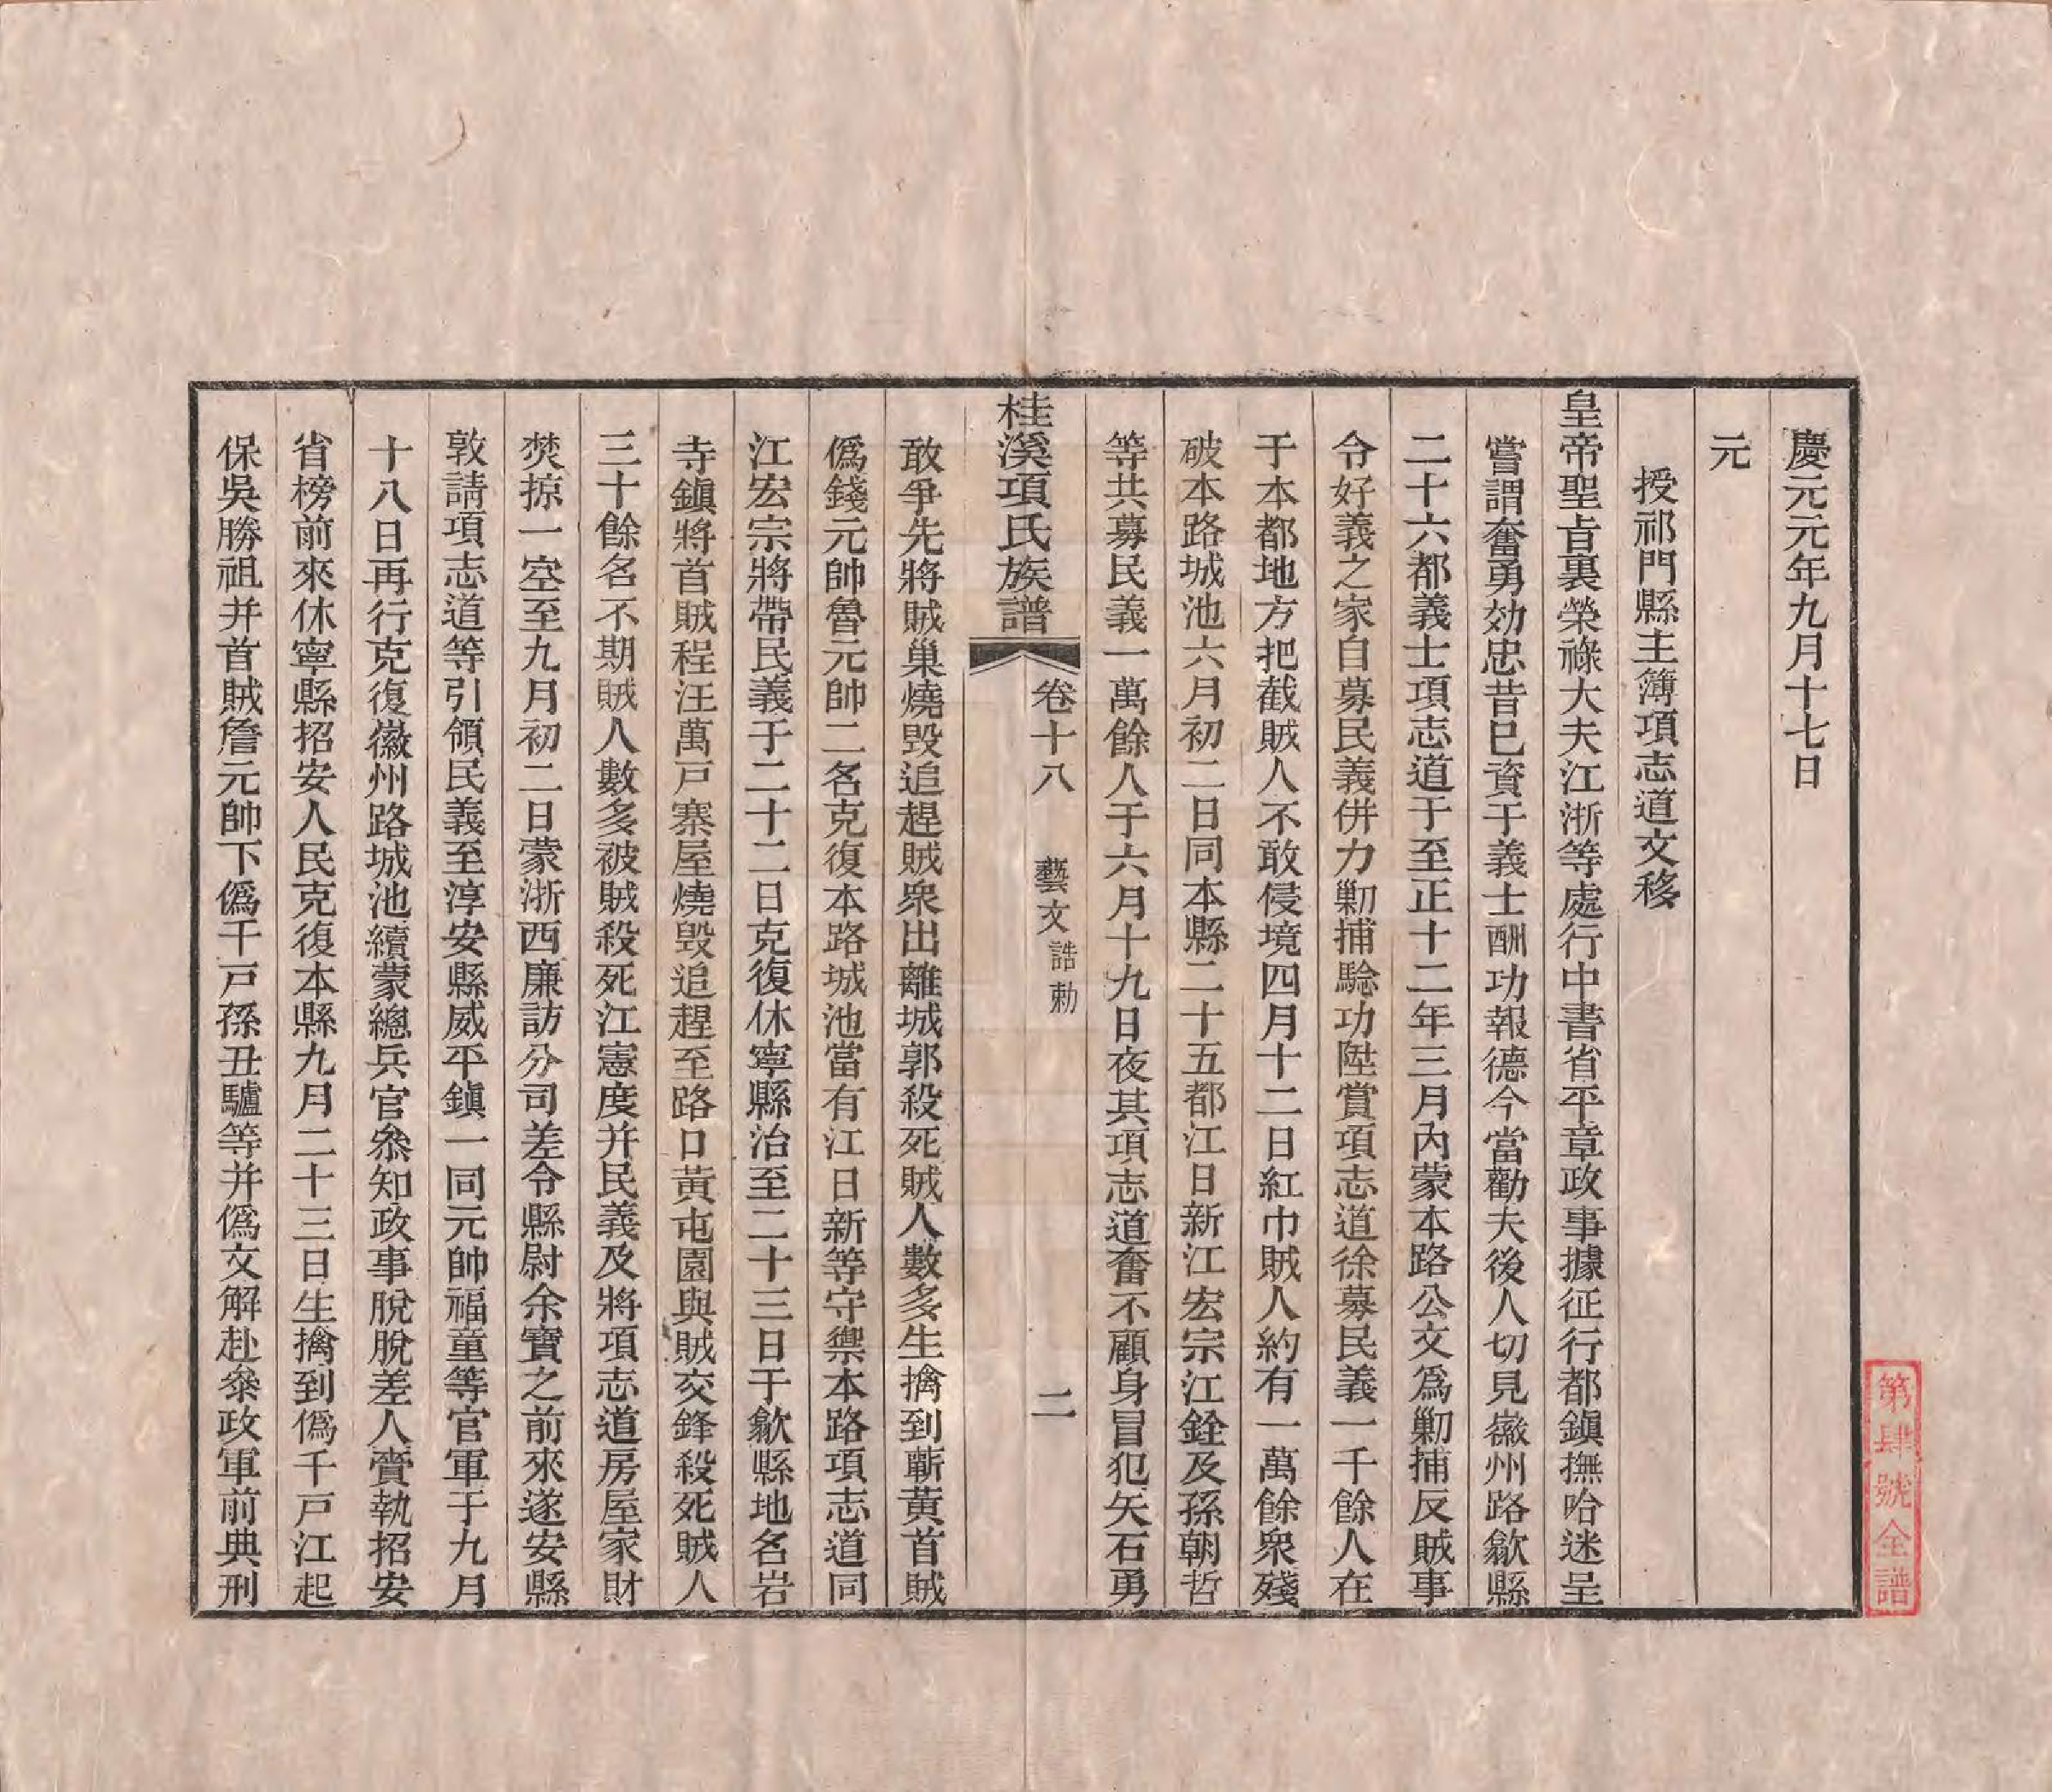 慶元元年九月十七日
元
授祁門縣主簿項志道文移
皇帝聖旨裏榮祿大夫江浙等處行中書省平章政事據征行都鎭撫哈迷呈
嘗謂奮勇効忠昔已資于義士酬功報德今當勸夫後人切見徽州路歙縣
二十六都義士項志道于至正十二年三月內蒙本路公文爲勦捕反賊事
令好義之家自募民義併力勦捕騐功陞賞項志道徐募民義一千餘人在
于本都地方把截賊人不敢侵境四月十二日紅巾賊人約有一萬餘衆殘
破本路城池六月初二日同本縣二十五都江日新江宏宗江銓及孫朝哲
等共募民義一萬餘人于六月十九日夜其項志道奮不顧身冒犯矢石勇
桂溪項氏族譜 卷十八 藝文 誥勅 二
敢爭先將賊巢燒毀追趕賊衆出離城郭殺死賊人數多生擒到蘄黃首賊
僞錢元帥魯元帥二名克復本路城池當有江日新等守禦本路項志道同
江宏宗將帶民義于二十二日克復休寧縣治至二十三日于歙縣地名岩
寺鎭將首賊程汪萬戸寨屋燒毀追趕至路口黃屯園與賊交鋒殺死賊人
三十餘名不期賊人數多被賊殺死江憲度并民義及將項志道房屋家財
焚掠一空至九月初二日蒙浙西廉訪分司差令縣尉余寶之前來遂安縣
敦請項志道等引領民義至淳安縣威平鎭一同元帥福童等官軍于九月
十八日再行克復徽州路城池續蒙總兵官叅知政事脫脫差人賫執招安
省榜前來休寧縣招安人民克復本縣九月二十三日生擒到僞千戸江起
保吳勝祖并首賊詹元帥下僞千戸孫丑驢等并僞文解赴叅政軍前典刑
第肆號全譜